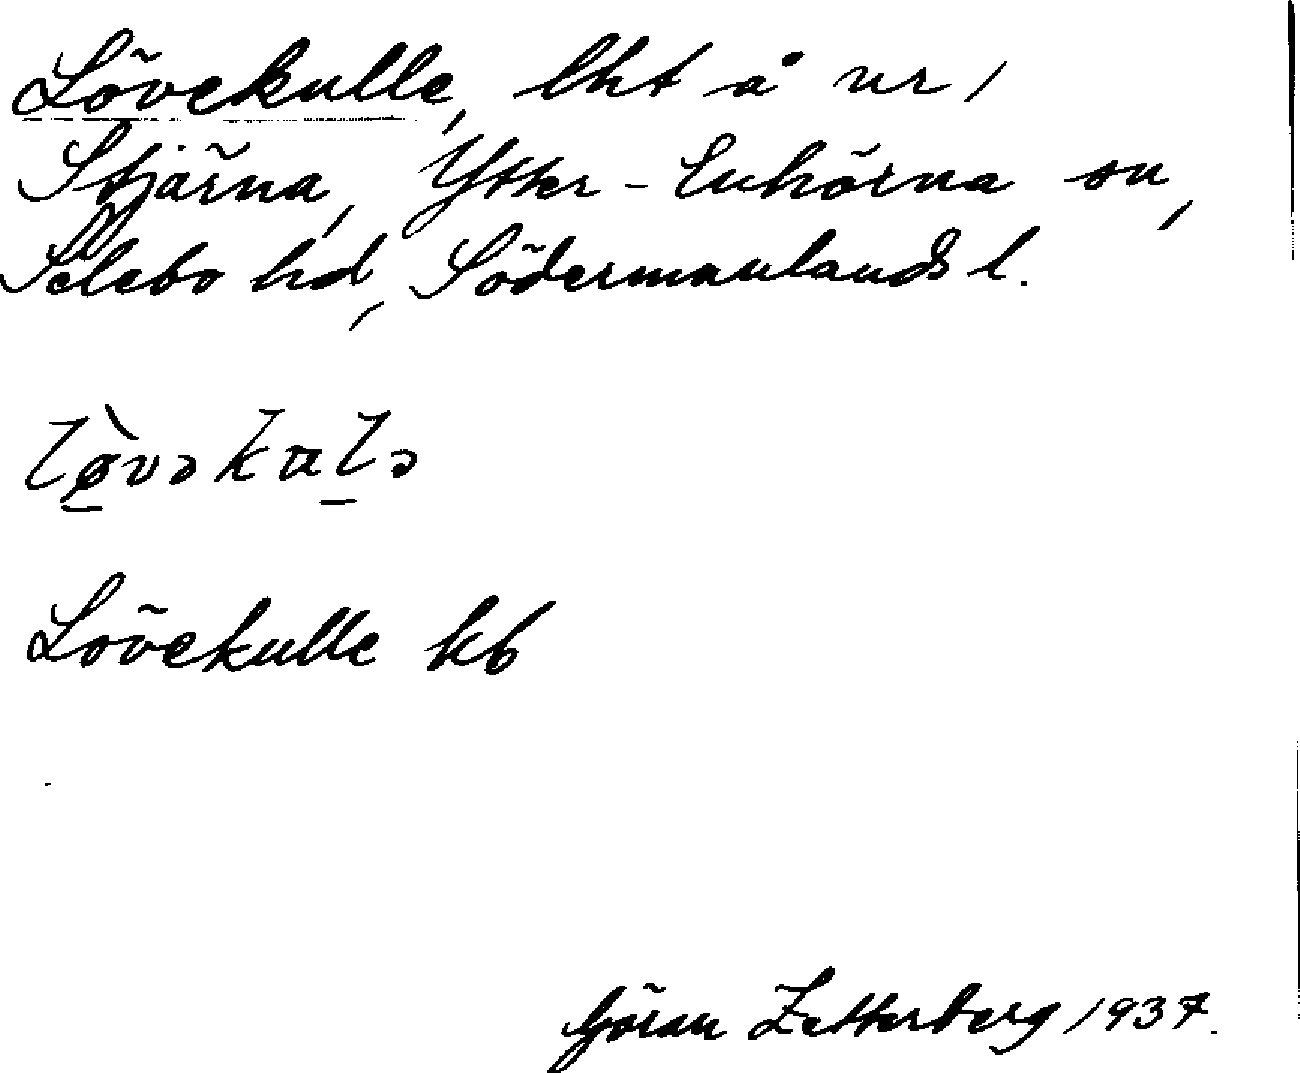 Lövekulle, lht å nr 1
Stjärna, Ytter-Enhörna sn,
Selebo hd, Södermanlands l.
lø̀vəkalə
Lövekulle kb
Göran Zetterberg 1937.